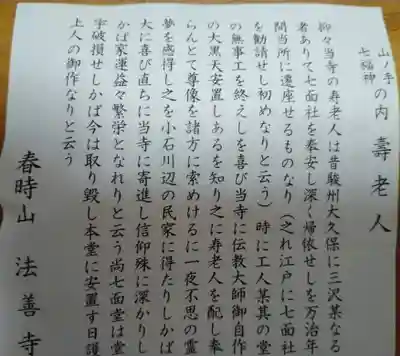 山ノ手
七福神の内 壽老人
抑々当寺の寿老人は昔駿州大久保に三沢某なる
者ありて七面社を奉安し深く帰依せしを万治年
間当所に遷座せるものなり(之れ江戸に七面社
を勧請せし初めなりと云う)時に工人某其の堂
の無事工を終えしを喜び当寺に伝教大師御自作
の大黒天安置しあるを知り之に寿老人を配し奉
らんとて尊像を諸方に索めけるに一夜不思の霊
夢を感得し之を小石川辺の民家に得たりしかば
大に喜び直ちに当寺に寄進し信仰殊に深かりし
かば家運益々繁栄となれりと云う尚七面堂は堂
宇破損せしかば今は取り毀し本堂に安置す日護
上人の御作なりと云う
春時山 法善寺